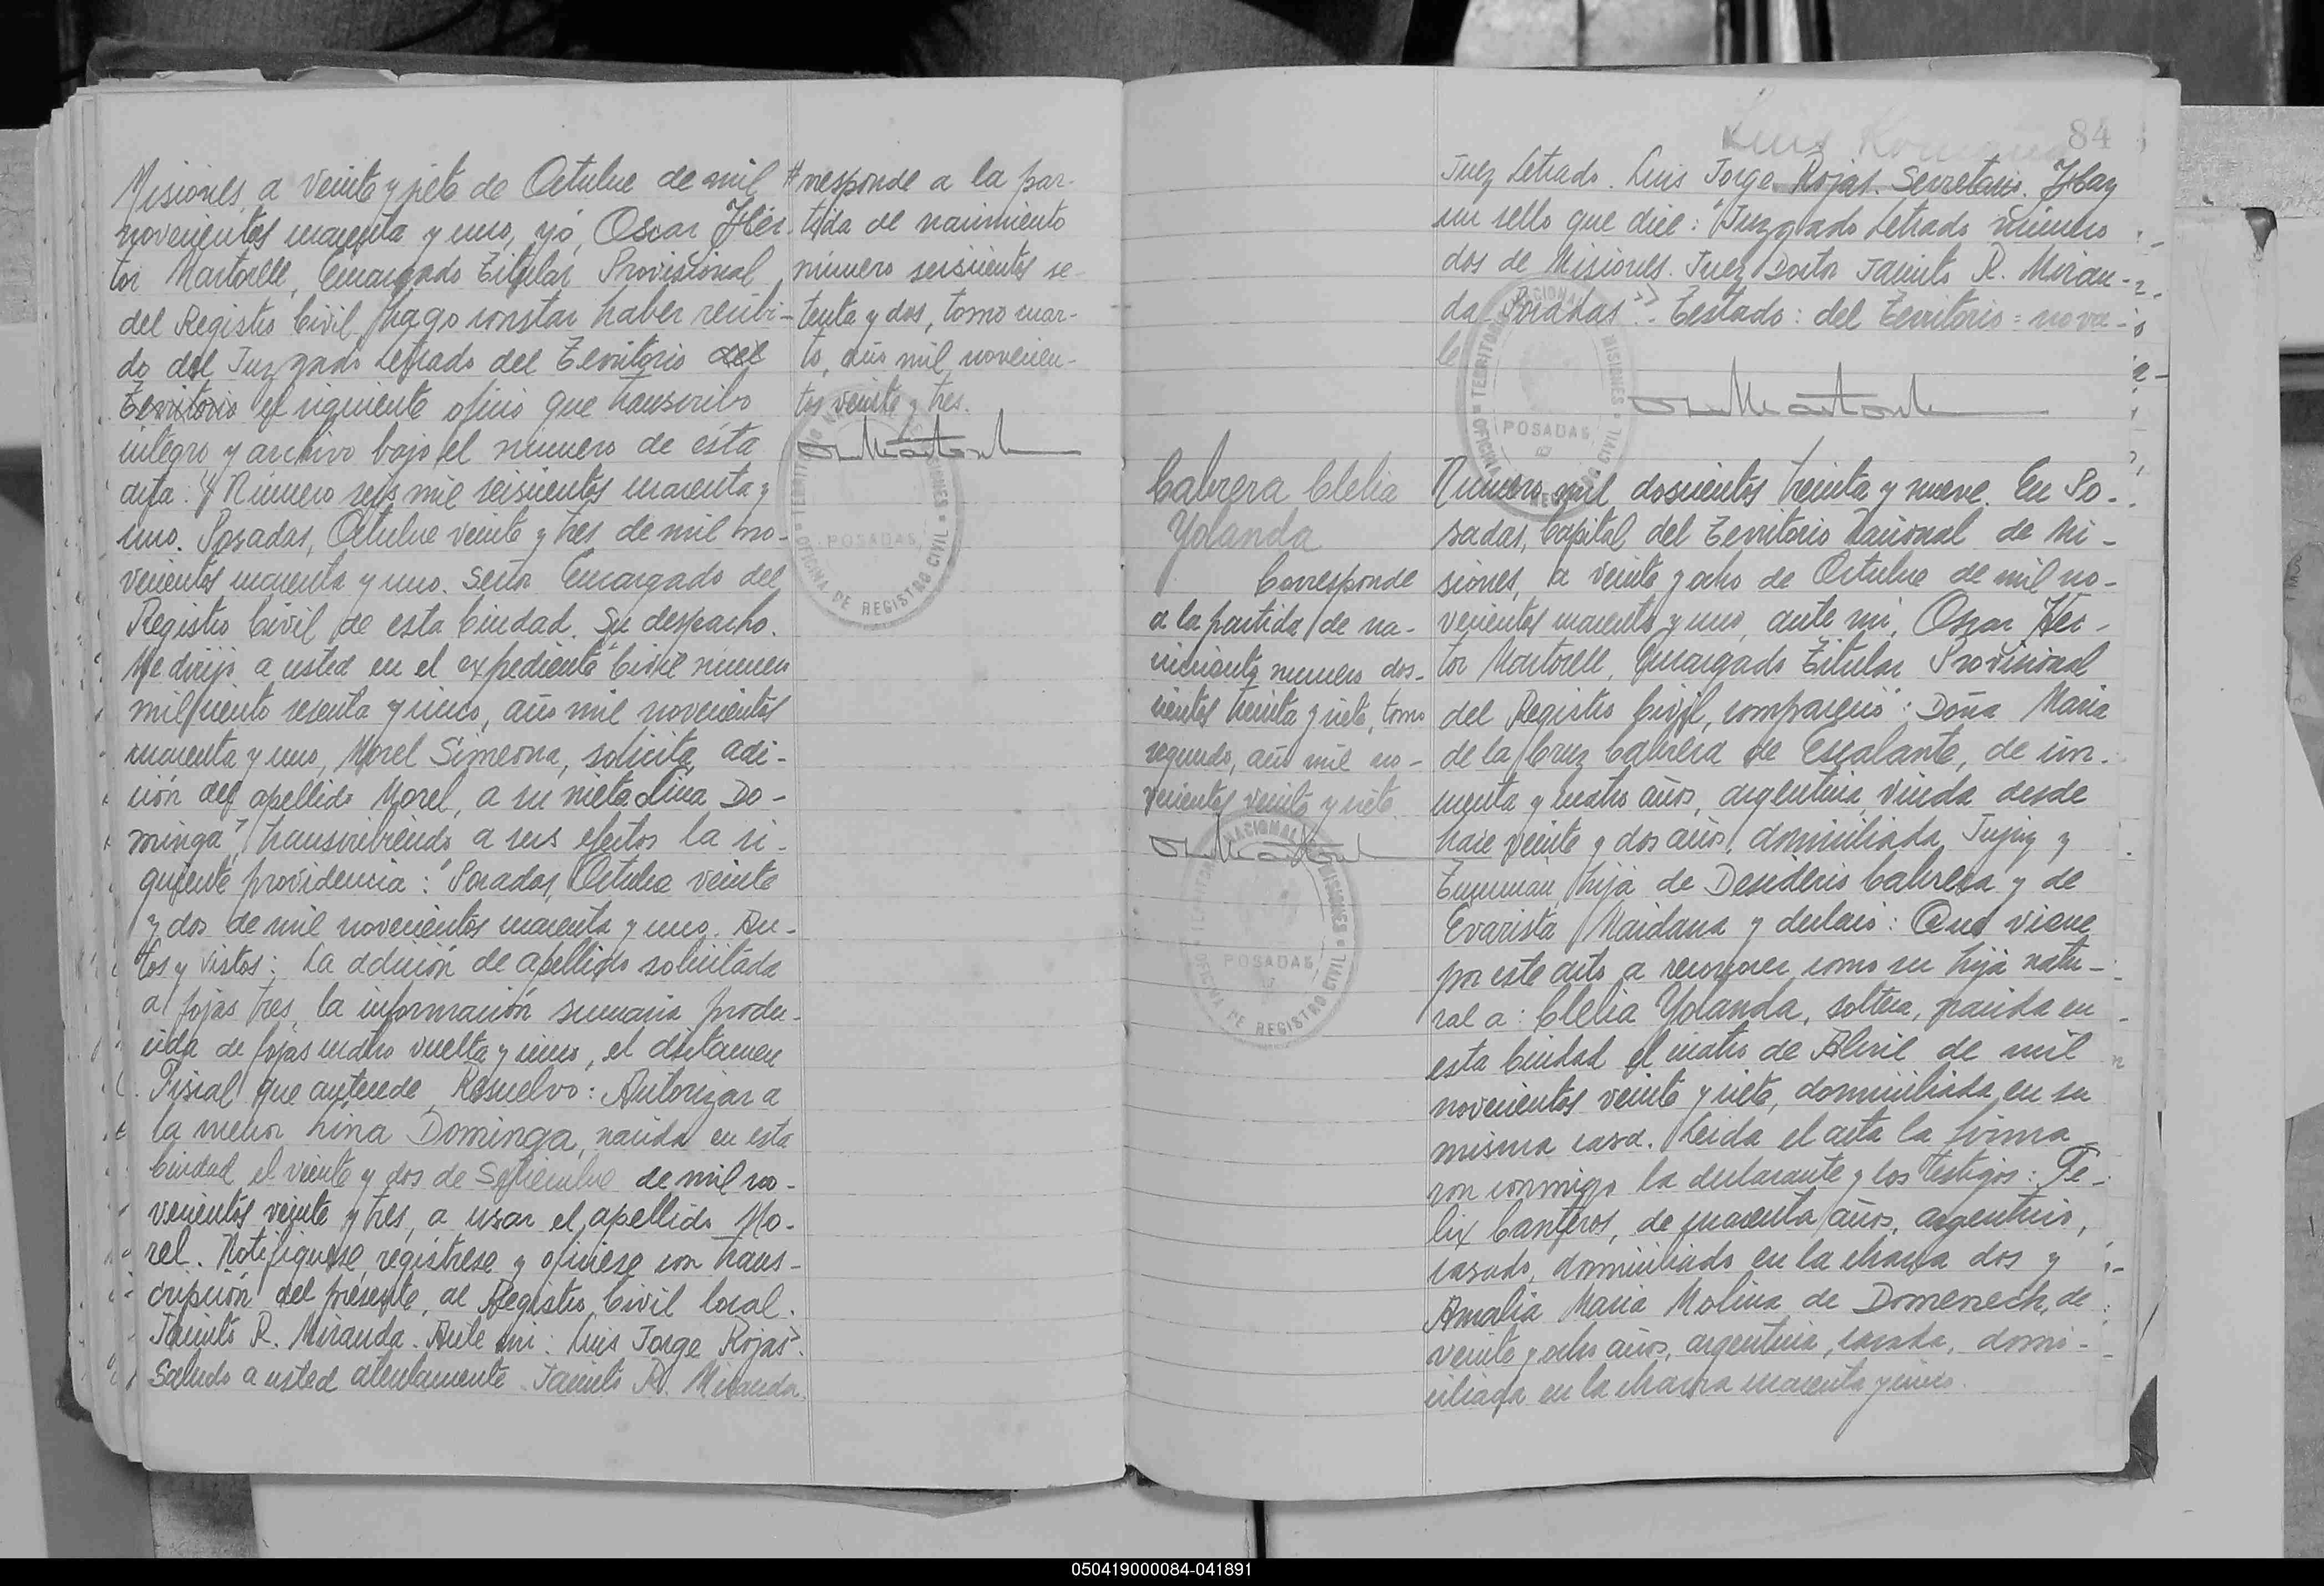 Misiones, a veinte y siete de Octubre de mil
novecientos cuarenta y uno, yó, Oscar Héc-
tor Martorell, Encargado Titular Provisional
del Registro Civil, hago constar haber recibi-
do del Juzgado Letrado del Territorio del
Territorio el siguiente oficio que transcribo
íntegro y archivo bajo el número de esta
acta: "Número seis mil seiscientos cuarenta y
uno. Posadas, Octubre veinte y tres de mil no-
vecientos cuarenta y uno. Señor Encargado del
Registro Civil de esta Ciudad. Su despacho.
Me dirijo a usted en el expediente "Civil número
mil ciento sesenta y cinco, año mil novecientos
cuarenta y uno, Morel Simeona, solicita, adi-
ción del apellido Morel, a su nieta Lina Do-
minga", transcribiendo a sus efectos la si-
guiente providencia: "Posadas, Octubre veinte
y dos de mil novecientos cuarenta y uno. Au-
tos y vistos: La adición de apellido solicitada
a fojas tres, la información sumaria produ-
cida de fojas cuatro vuelta y cinco, el dictamen
Fiscal que antecede, Resuelvo: Autorizar a
la menor Lina Dominga, nacida en esta
Ciudad el veinte y dos de Septiembre de mil no-
vecientos veinte y tres, a usar el apellido Mo-
rel. Notifíquese, regístrese y ofíciese con trans-
cripción del presente, al Registro Civil local.
Jacinto R. Miranda. Ante mi: Luis Jorge Rojas".
Saludo a usted atentamente. Jacinto R. Miranda.
#rresponde a la par-
tida de nacimiento
número seiscientos se-
tenta y dos, tomo cuar-
to, año mil novecien-
tos veinte y tres.
TERRITORIO NACIONAL MISIONES
POSADAS
OFICINA DE REGISTRO CIVIL
84
Luis
Juez Letrado. Luis Jorge Rojas. Secretario. Hay
un sello que dice: "Juzgado Letrado número
dos de Misiones. Juez Doctor Jacinto R. Miran-
da Posadas". Testado: del Territorio = no va-
le
TERRITORIO NACIONAL MISIONES
POSADAS
OFICINA DE REGISTRO CIVIL
Cabrera Clelia
Yolanda
Corresponde
a la partida de na-
cimiento numero dos-
cientos treinta y siete, tomo
segundo, año mil no-
vecientos veinte y siete.
TERRITORIO NACIONAL MISIONES
POSADAS
OFICINA DE REGISTRO CIVIL
Número mil doscientos treinta y nueve. En Po-
sadas, Capital del Territorio Nacional de Mi-
siones, a veinte y ocho de Octubre de mil no-
vecientos cuarenta y uno, ante mi, Oscar Héc-
tor Martorell, Encargado Titular Provisional
del Registro Civil, compareció: Doña Maria
de la Cruz Cabrera de Escalante, de cin-
cuenta y cuatro años, argentina, viuda desde
hace veinte y dos años, domiciliada Jujuy y
Tucumán, hija de Desiderio Cabrera y de
Evarista Maidana y declaró: Que viene
por este acto a reconocer como su hija natu-
ral a: Clelia Yolanda, soltera, nacida en
esta Ciudad el cuatro de Abril de mil
novecientos veinte y siete, domiciliada en su
misma casa. Leída el acta la firma-
ron conmigo la declarante y los testigos: Fe-
lix Canteros, de cuarenta años, argentino,
casado, domiciliado en la chacra dos y
Amalia Maria Molina de Domenech, de
veinte y ocho años, argentina, casada, domi-
ciliada en la chacra cuarenta y cinco.
050419000084-041891